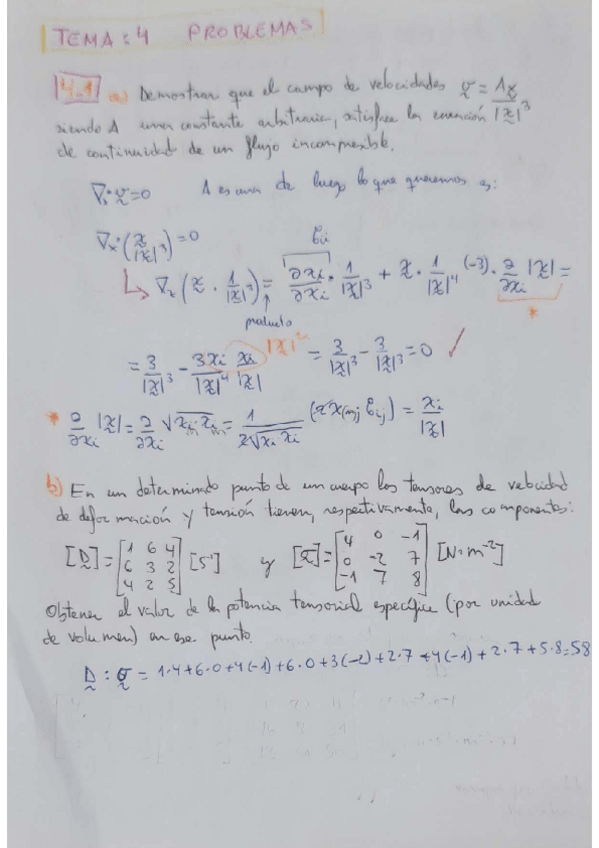 TEMA: 4 PROBLEMAS
4.1 a) Demostrar que el campo de velocidades v = Ax/|x|³
siendo A una constante arbitraria, satisface la ecuación
de continuidad de un flujo incompresible.
∇ₓ·v = 0 A es una de luego lo que queremos es:
∇ₓ·(x/|x|³) = 0
∇ₓ(x · 1/|x|³) = ∂xi/∂xi · 1/|x|³ + x · 1/|x|⁴ (-3) · ∂/∂xi |x| =
producto
= 3/|x|³ - 3xi/|x|⁴ xi/|x| |x|² = 3/|x|³ - 3/|x|³ = 0 ✓
* ∂/∂xi |x| = ∂/∂xi √xm·xm = 1/2√xi xi = xi/|x|
b) En un determinado punto de un cuerpo los tensores de velocidad
de deformación y tensión tienen, respectivamente, las componentes:
[D] = [1 6 4
6 3 2
4 2 5] [s⁻¹] y [σ] = [4 0 -1
0 -2 7
-1 7 8] [N·m⁻²]
Obtener el valor de la potencia tensorial específica (por unidad
de volumen) en ese punto.
D : σ = 1·4+6·0+4(-1)+6·0+3(-2)+2·7+4(-1)+2·7+5·8=58